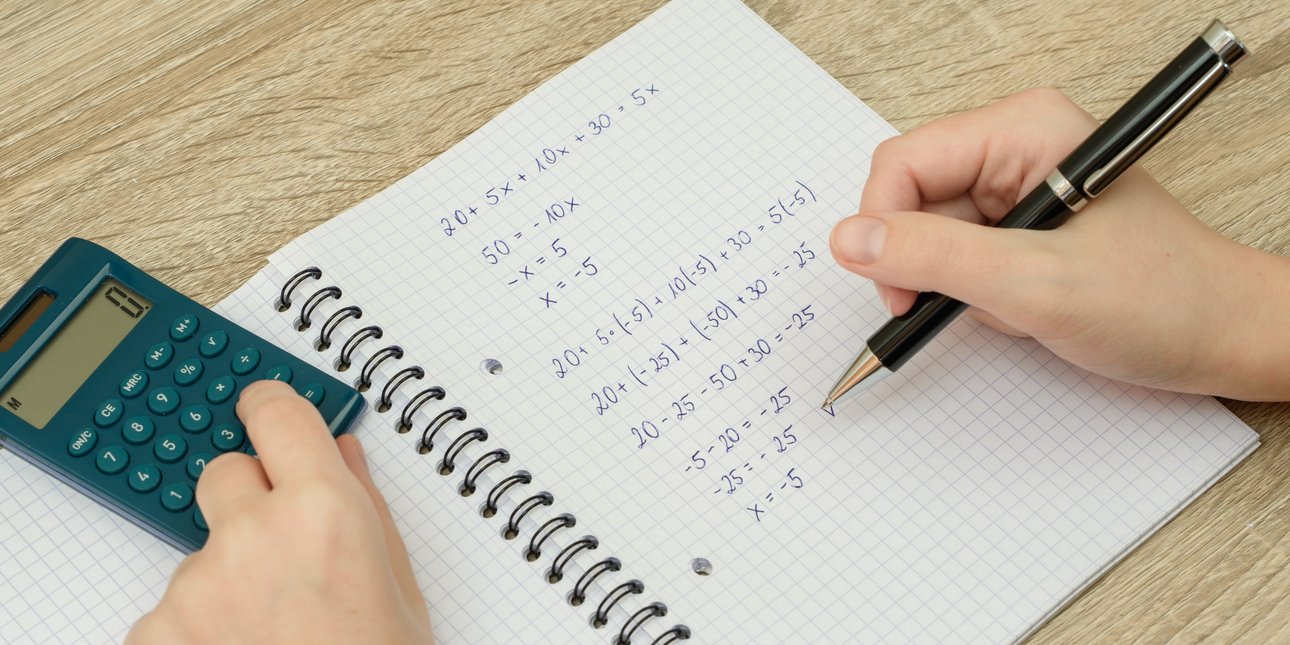 20 + 5x + 10x + 30 = 5x
50 = -10x
-x = 5
x = -5
20 + 5·(-5) + 10(-5) + 30 = 5(-5)
20 + (-25) + (-50) + 30 = -25
20 - 25 - 50 + 30 = -25
-5 - 20 = -25
-25 = -25
x = -5
M
0.
M+
M- √
MRC % ÷
CE 9 ×
ON/C 8 6 -
7 5 3 =
4 2
1